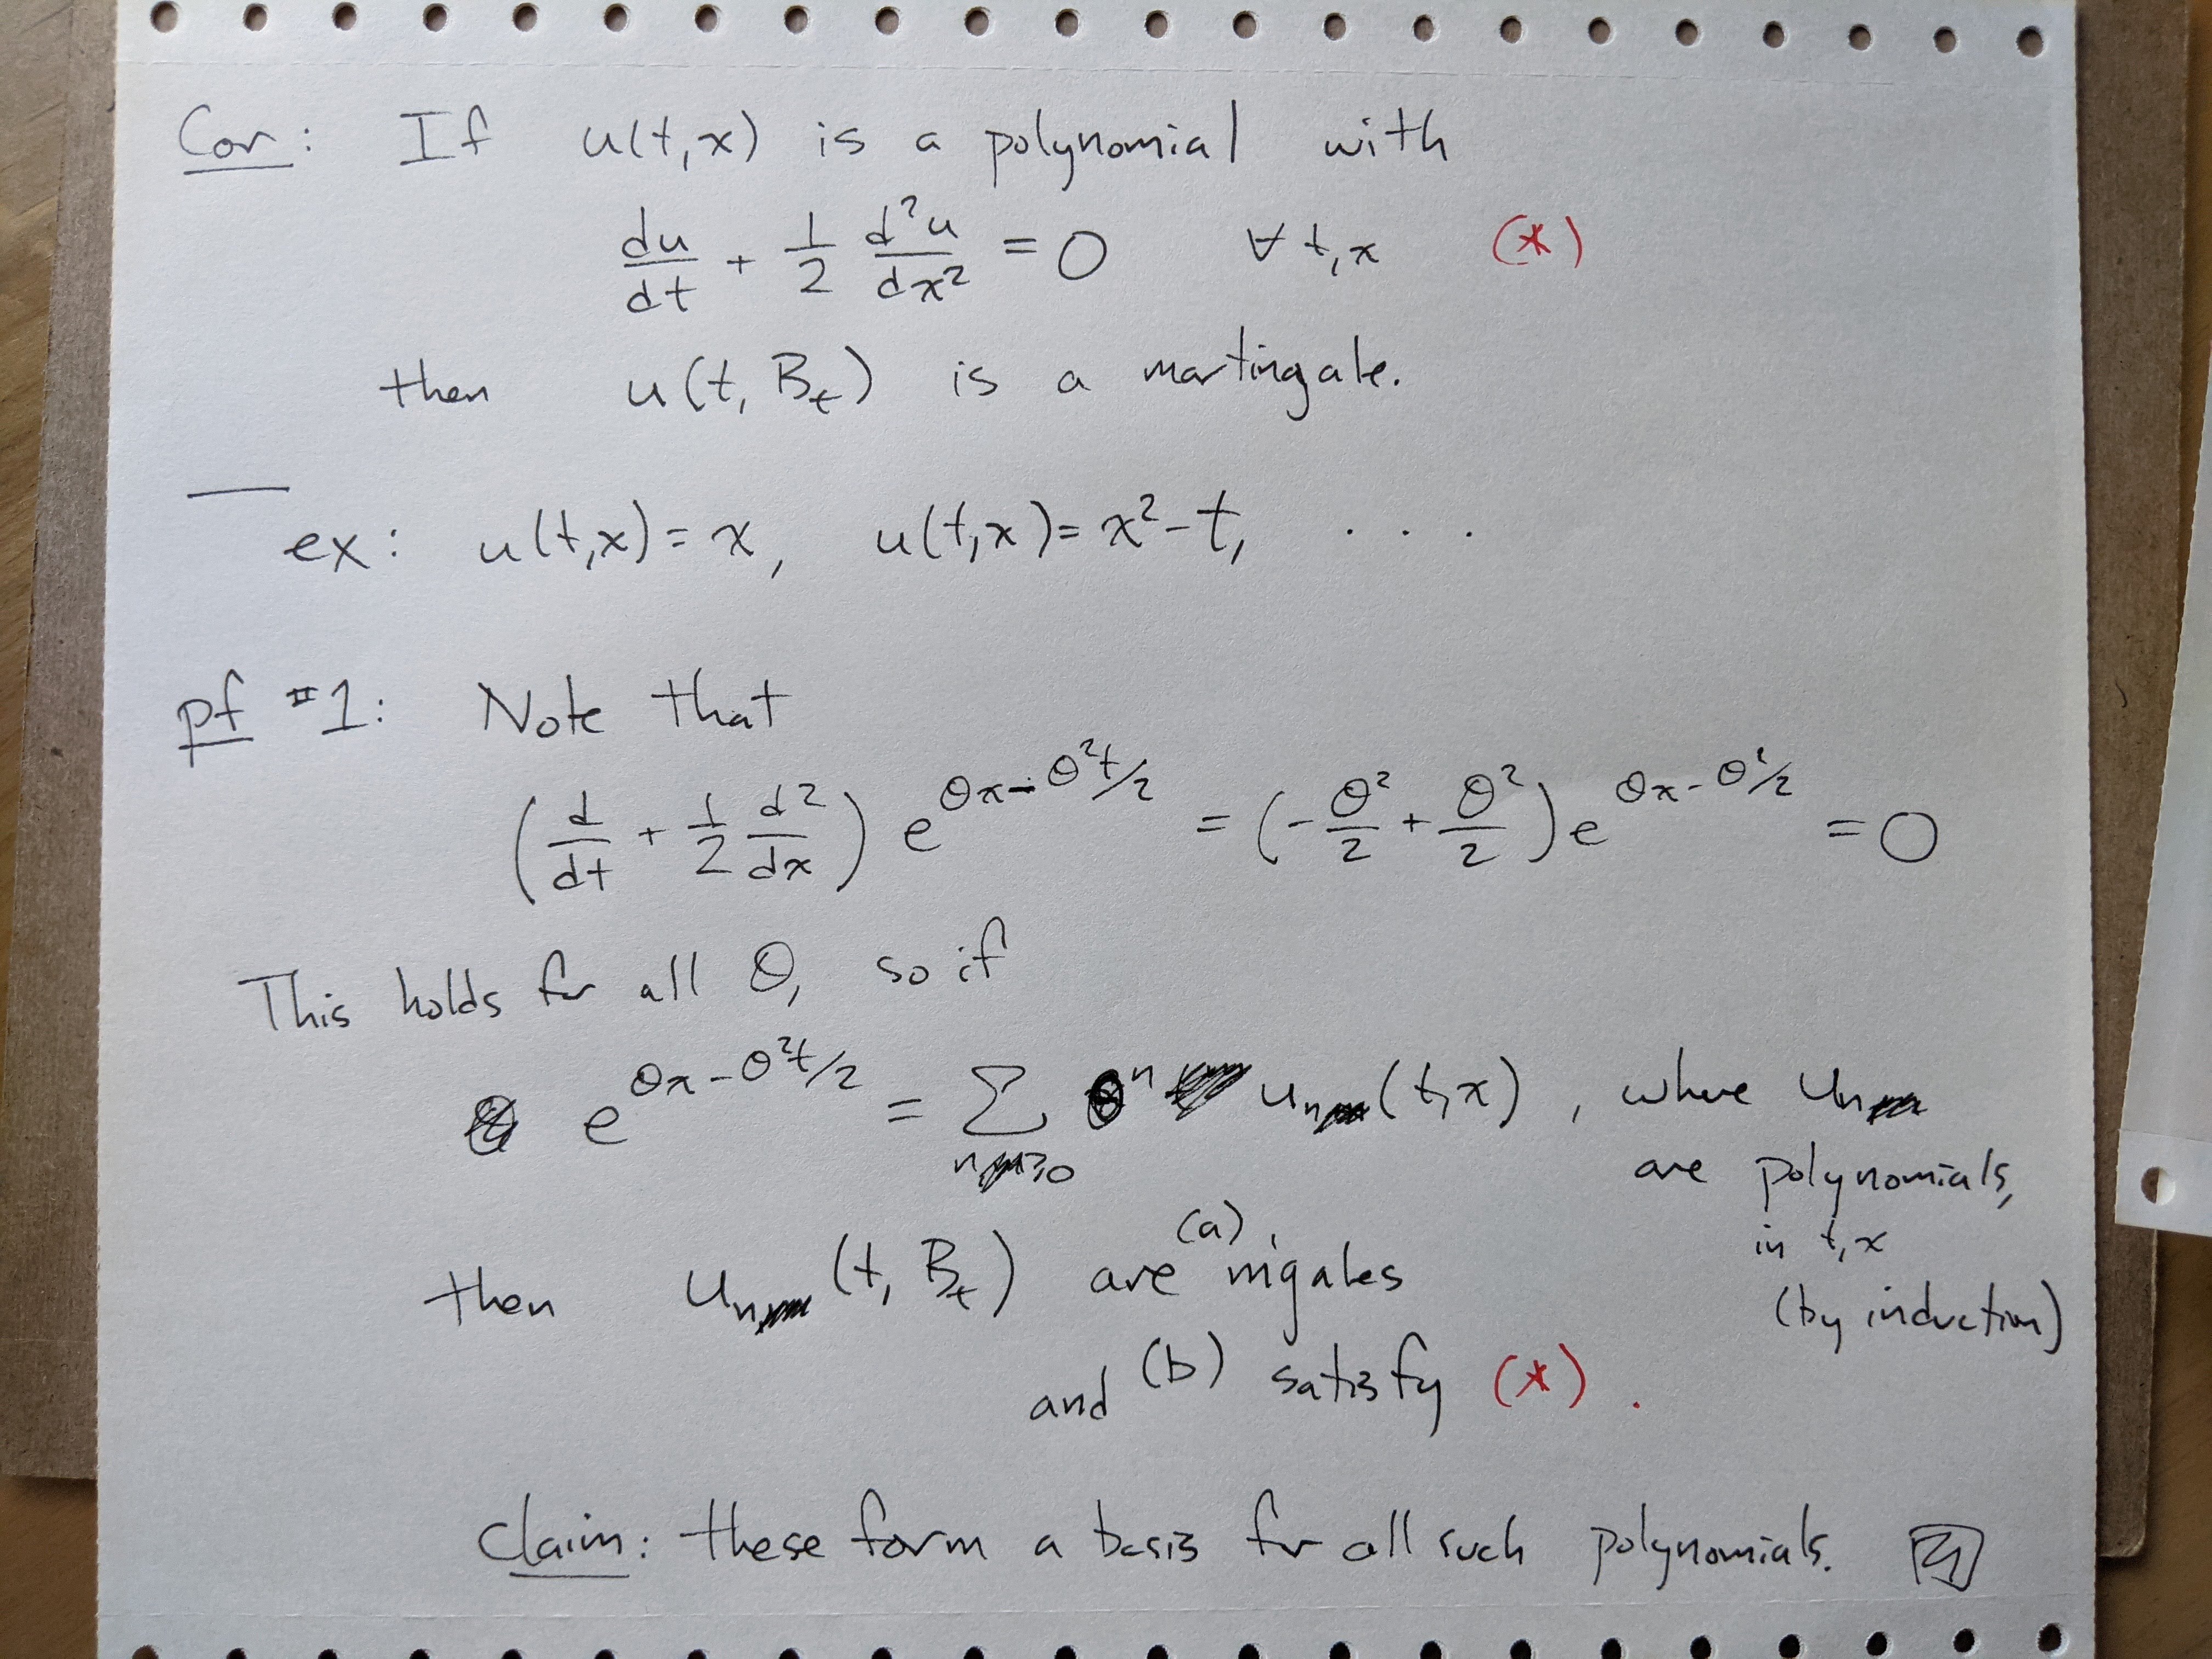 Cor: If u(t,x) is a polynomial with
du/dt + 1/2 d²u/dx² = 0 ∀ t,x (*)
then u(t, B_t) is a martingale.
ex: u(t,x) = x, u(t,x) = x² - t, . . .
pf #1: Note that
(d/dt + 1/2 d²/dx) e^{θx - θ²t/2} = (-θ²/2 + θ²/2) e^{θx - θ²/2} = 0
This holds for all θ, so if
e^{θx - θ²t/2} = Σ_{n≥0} θⁿ u_n(t,x), where u_n
are polynomials,
in t,x
(by induction)
then u_n(t, B_t) are (a) mgales
and (b) satisfy (*).
Claim: these form a basis for all such polynomials.